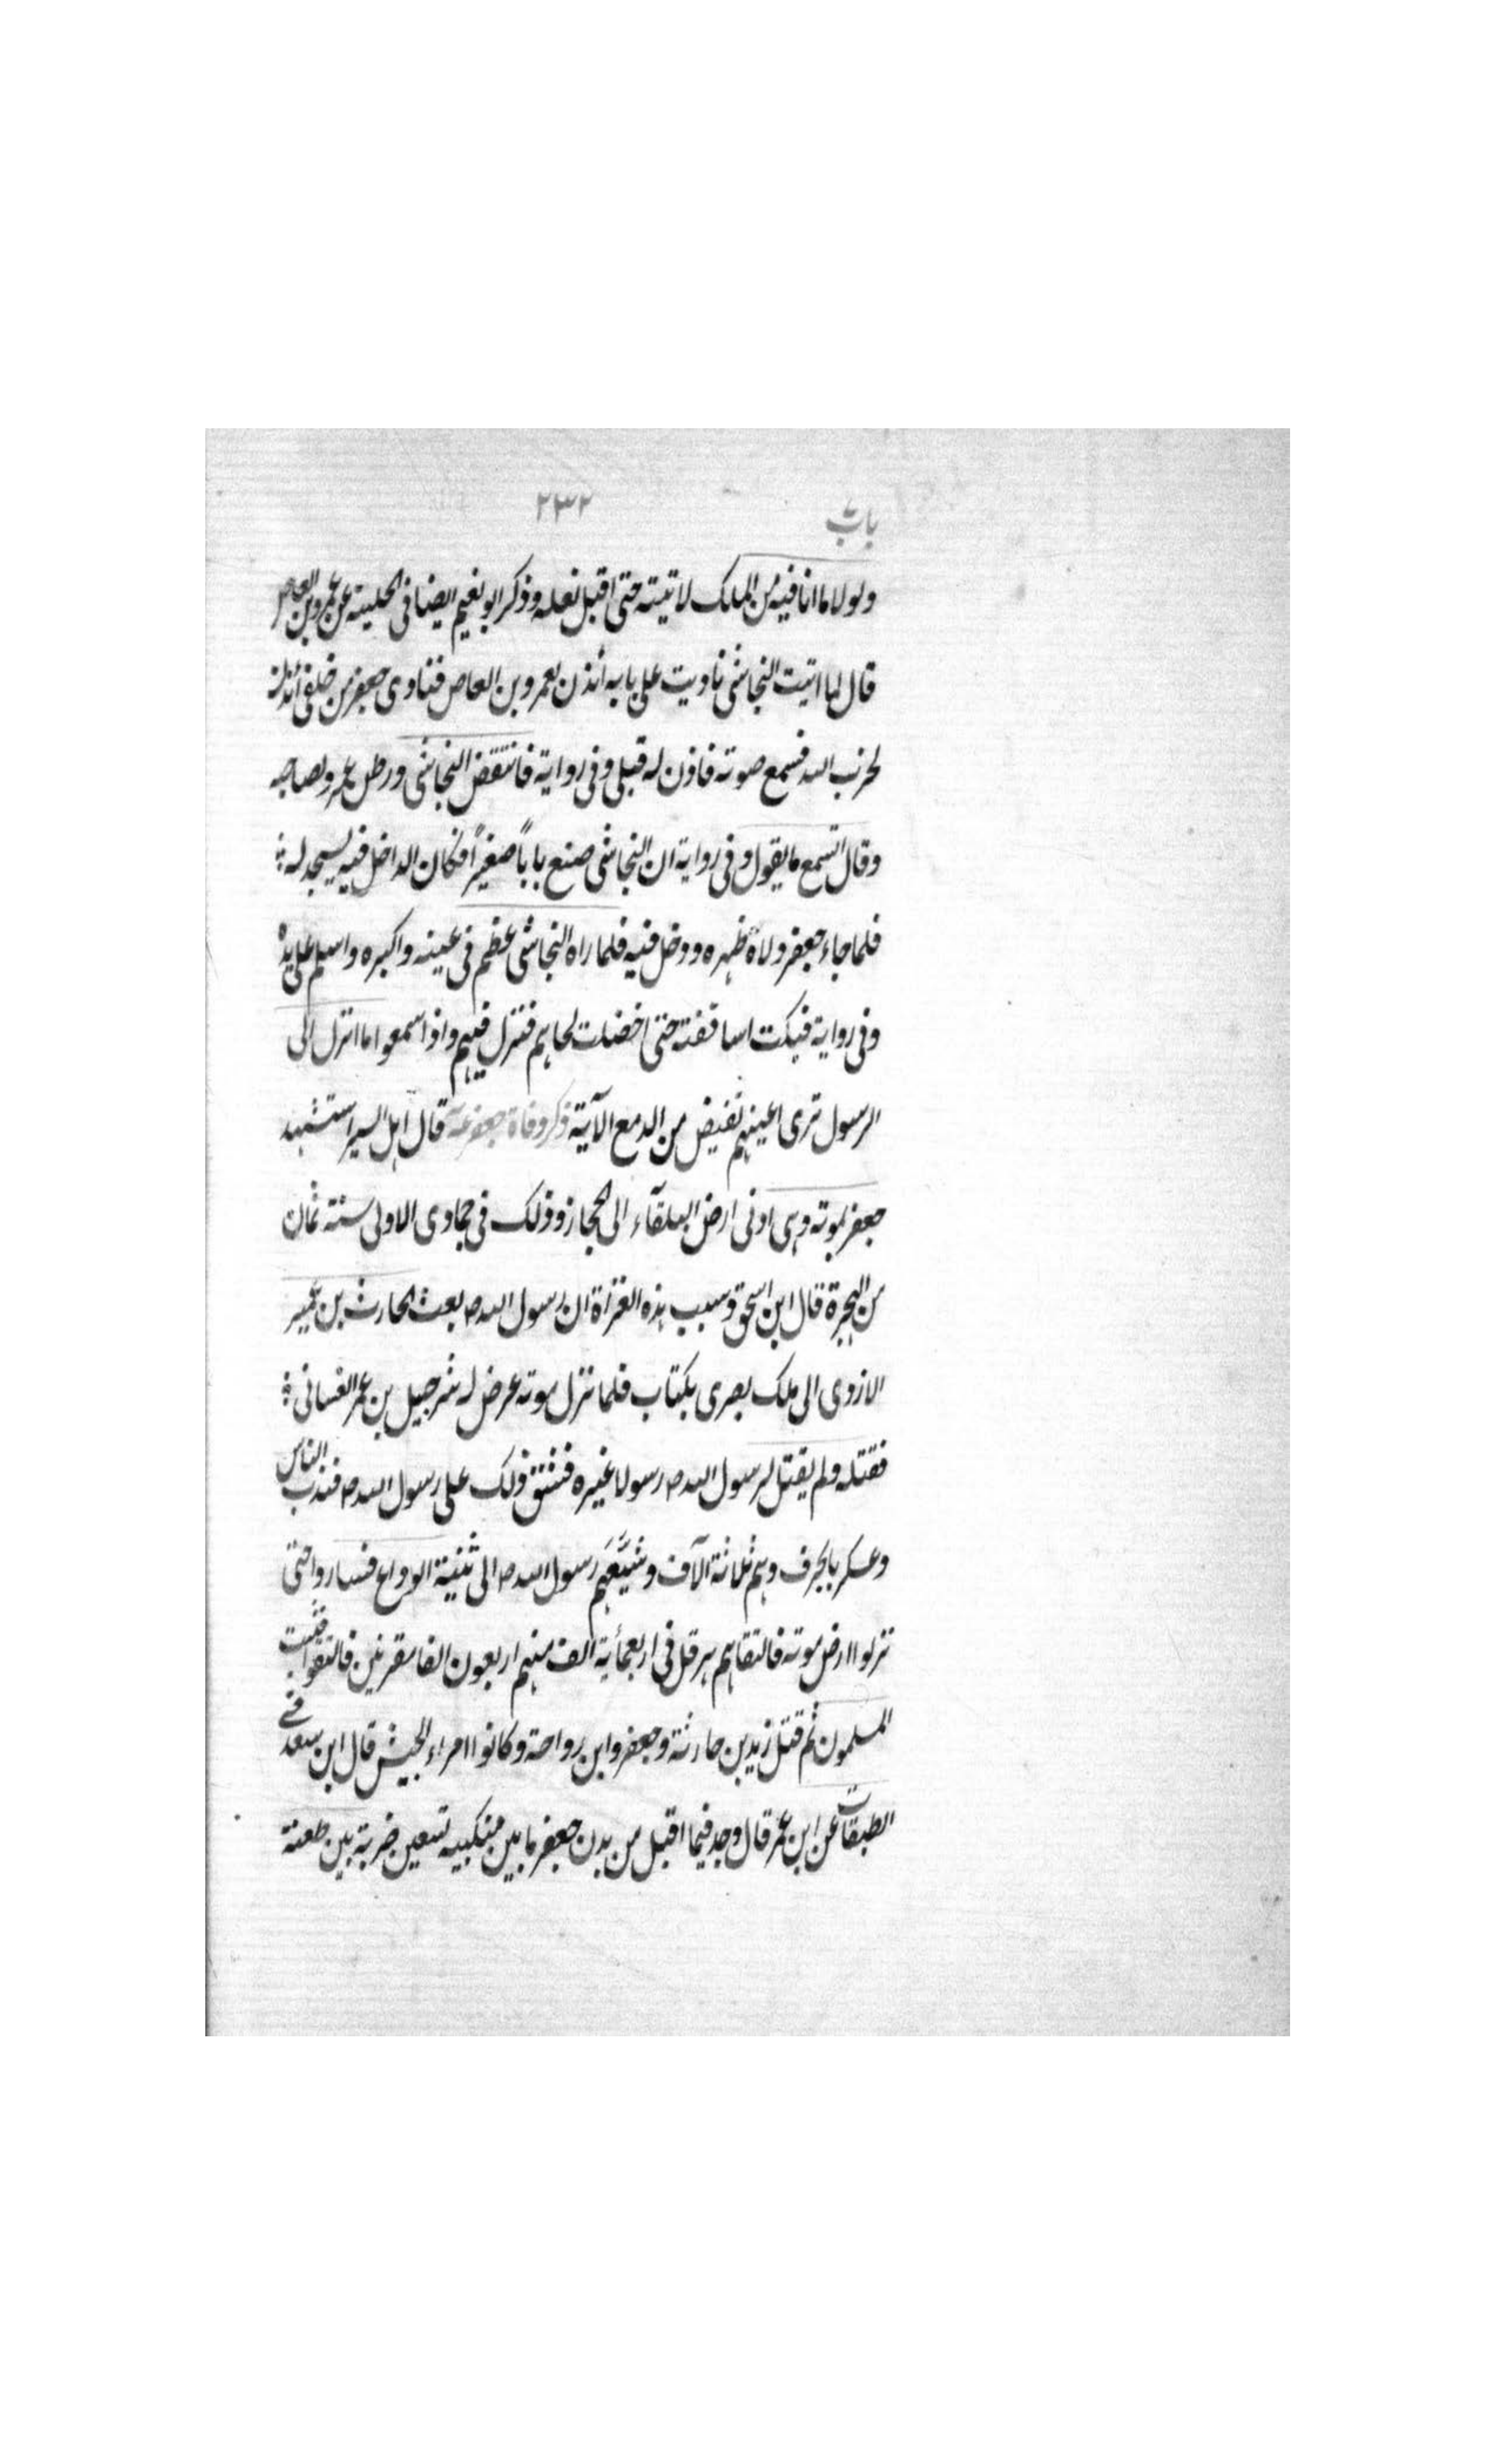 باب ٢٣٢
ولولا ما انا فيه من الملك لاتيته حتى اقبل نعله وذكر ابو نعيم ايضا فى الحلية عن عمرو بن العاص
قال لما اتيت النجاشى ناديت على بابه ائذن لعمرو بن العاص فنادى جعفر من خلفى ائذن
لحزب الله فسمع صوته فاذن له قبلى وفى رواية فانتقض النجاشى عمرو لصاحبه
وقال اتسمع ما يقول وفى رواية ان النجاشى صنع باباً صغيراً فكان الداخل فيه يسجد له
فلما جاء جعفر ولاه ظهره ودخل فيه فلما راه النجاشى عظم فى عينه واكبره واسلم على يده
وفى رواية فبكت اساقفته حتى اخضلت لحاهم فنزل فيهم واذا سمعوا ما انزل الى
الرسول ترى اعينهم تفيض من الدمع الآية ذكر وفاة جعفر قال اهل السير استشهد
جعفر بموته وهى ادنى ارض البلقآء الى الحجاز وذلك فى جمادى الاولى سنة ثمان
من الهجرة قال ابن اسحق وسبب هذه الغزاة ان رسول الله ص بعث الحارث بن عمير
الازدى الى ملك بصرى بكتاب فلما نزل موته عرض له شرحبيل بن عمر الغسانى
فقتله ولم يقتل لرسول الله ص رسولا غيره فشق ذلك على رسول الله ص فندب الناس
وعسكر بالجرف وهم ثلاثة الآف وشيَّعَهم رسول الله ص الى ثنية الوداع فساروا حتى
نزلوا ارض موته فالتقاهم هرقل فى اربعمائة الف منهم اربعون الفا مقرنين فالتقوا فثبت
المسلمون ثم قتل زيد بن حارثة وجعفر وابن رواحة وكانوا امراء الجيش قال ابن سعد فى
الطبقات عن ابن عمر قال وجد فيما اقبل من بدن جعفر ما بين منكبيه تسعين ضربة بين طعنة